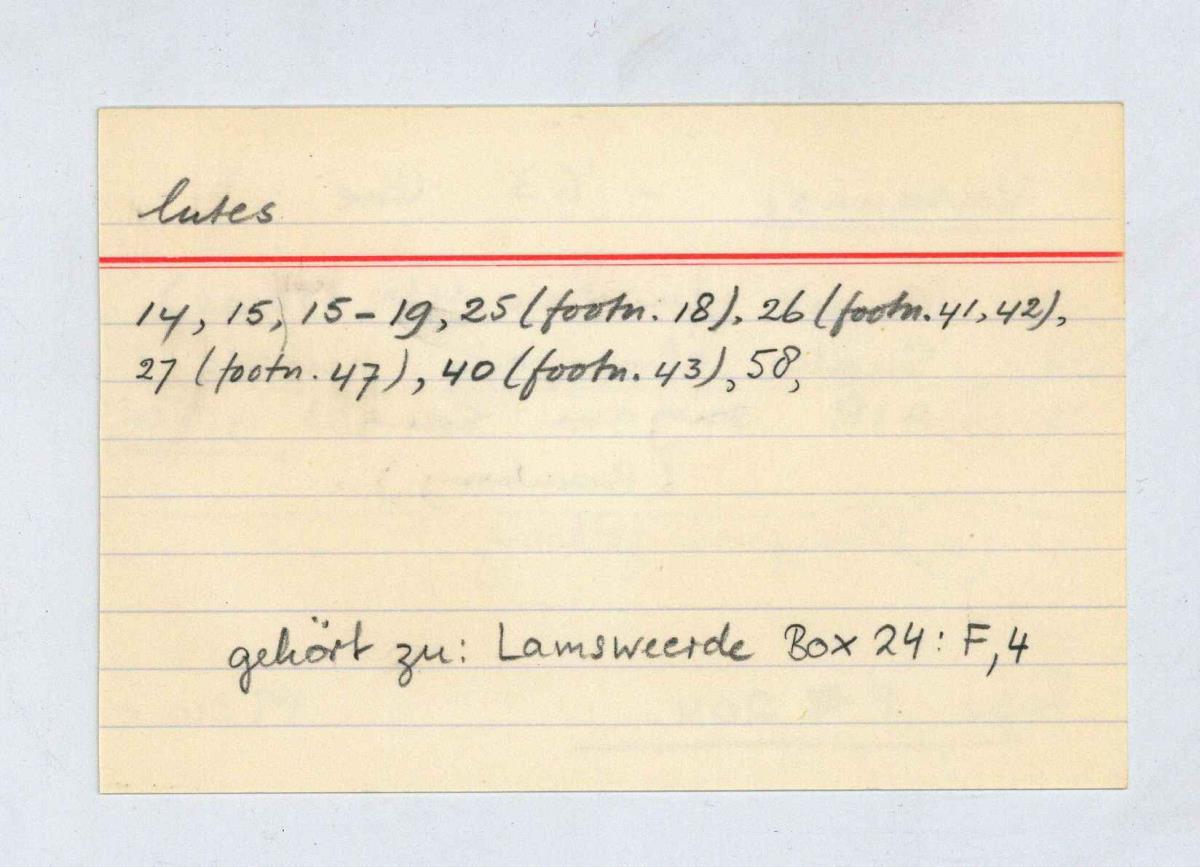 lutes
14, 15, 15-19, 25 (footn. 18), 26 (footn. 41, 42),
27 (footn. 47), 40 (footn. 43), 58,
gehört zu: Lamsweerde Box 24: F, 4